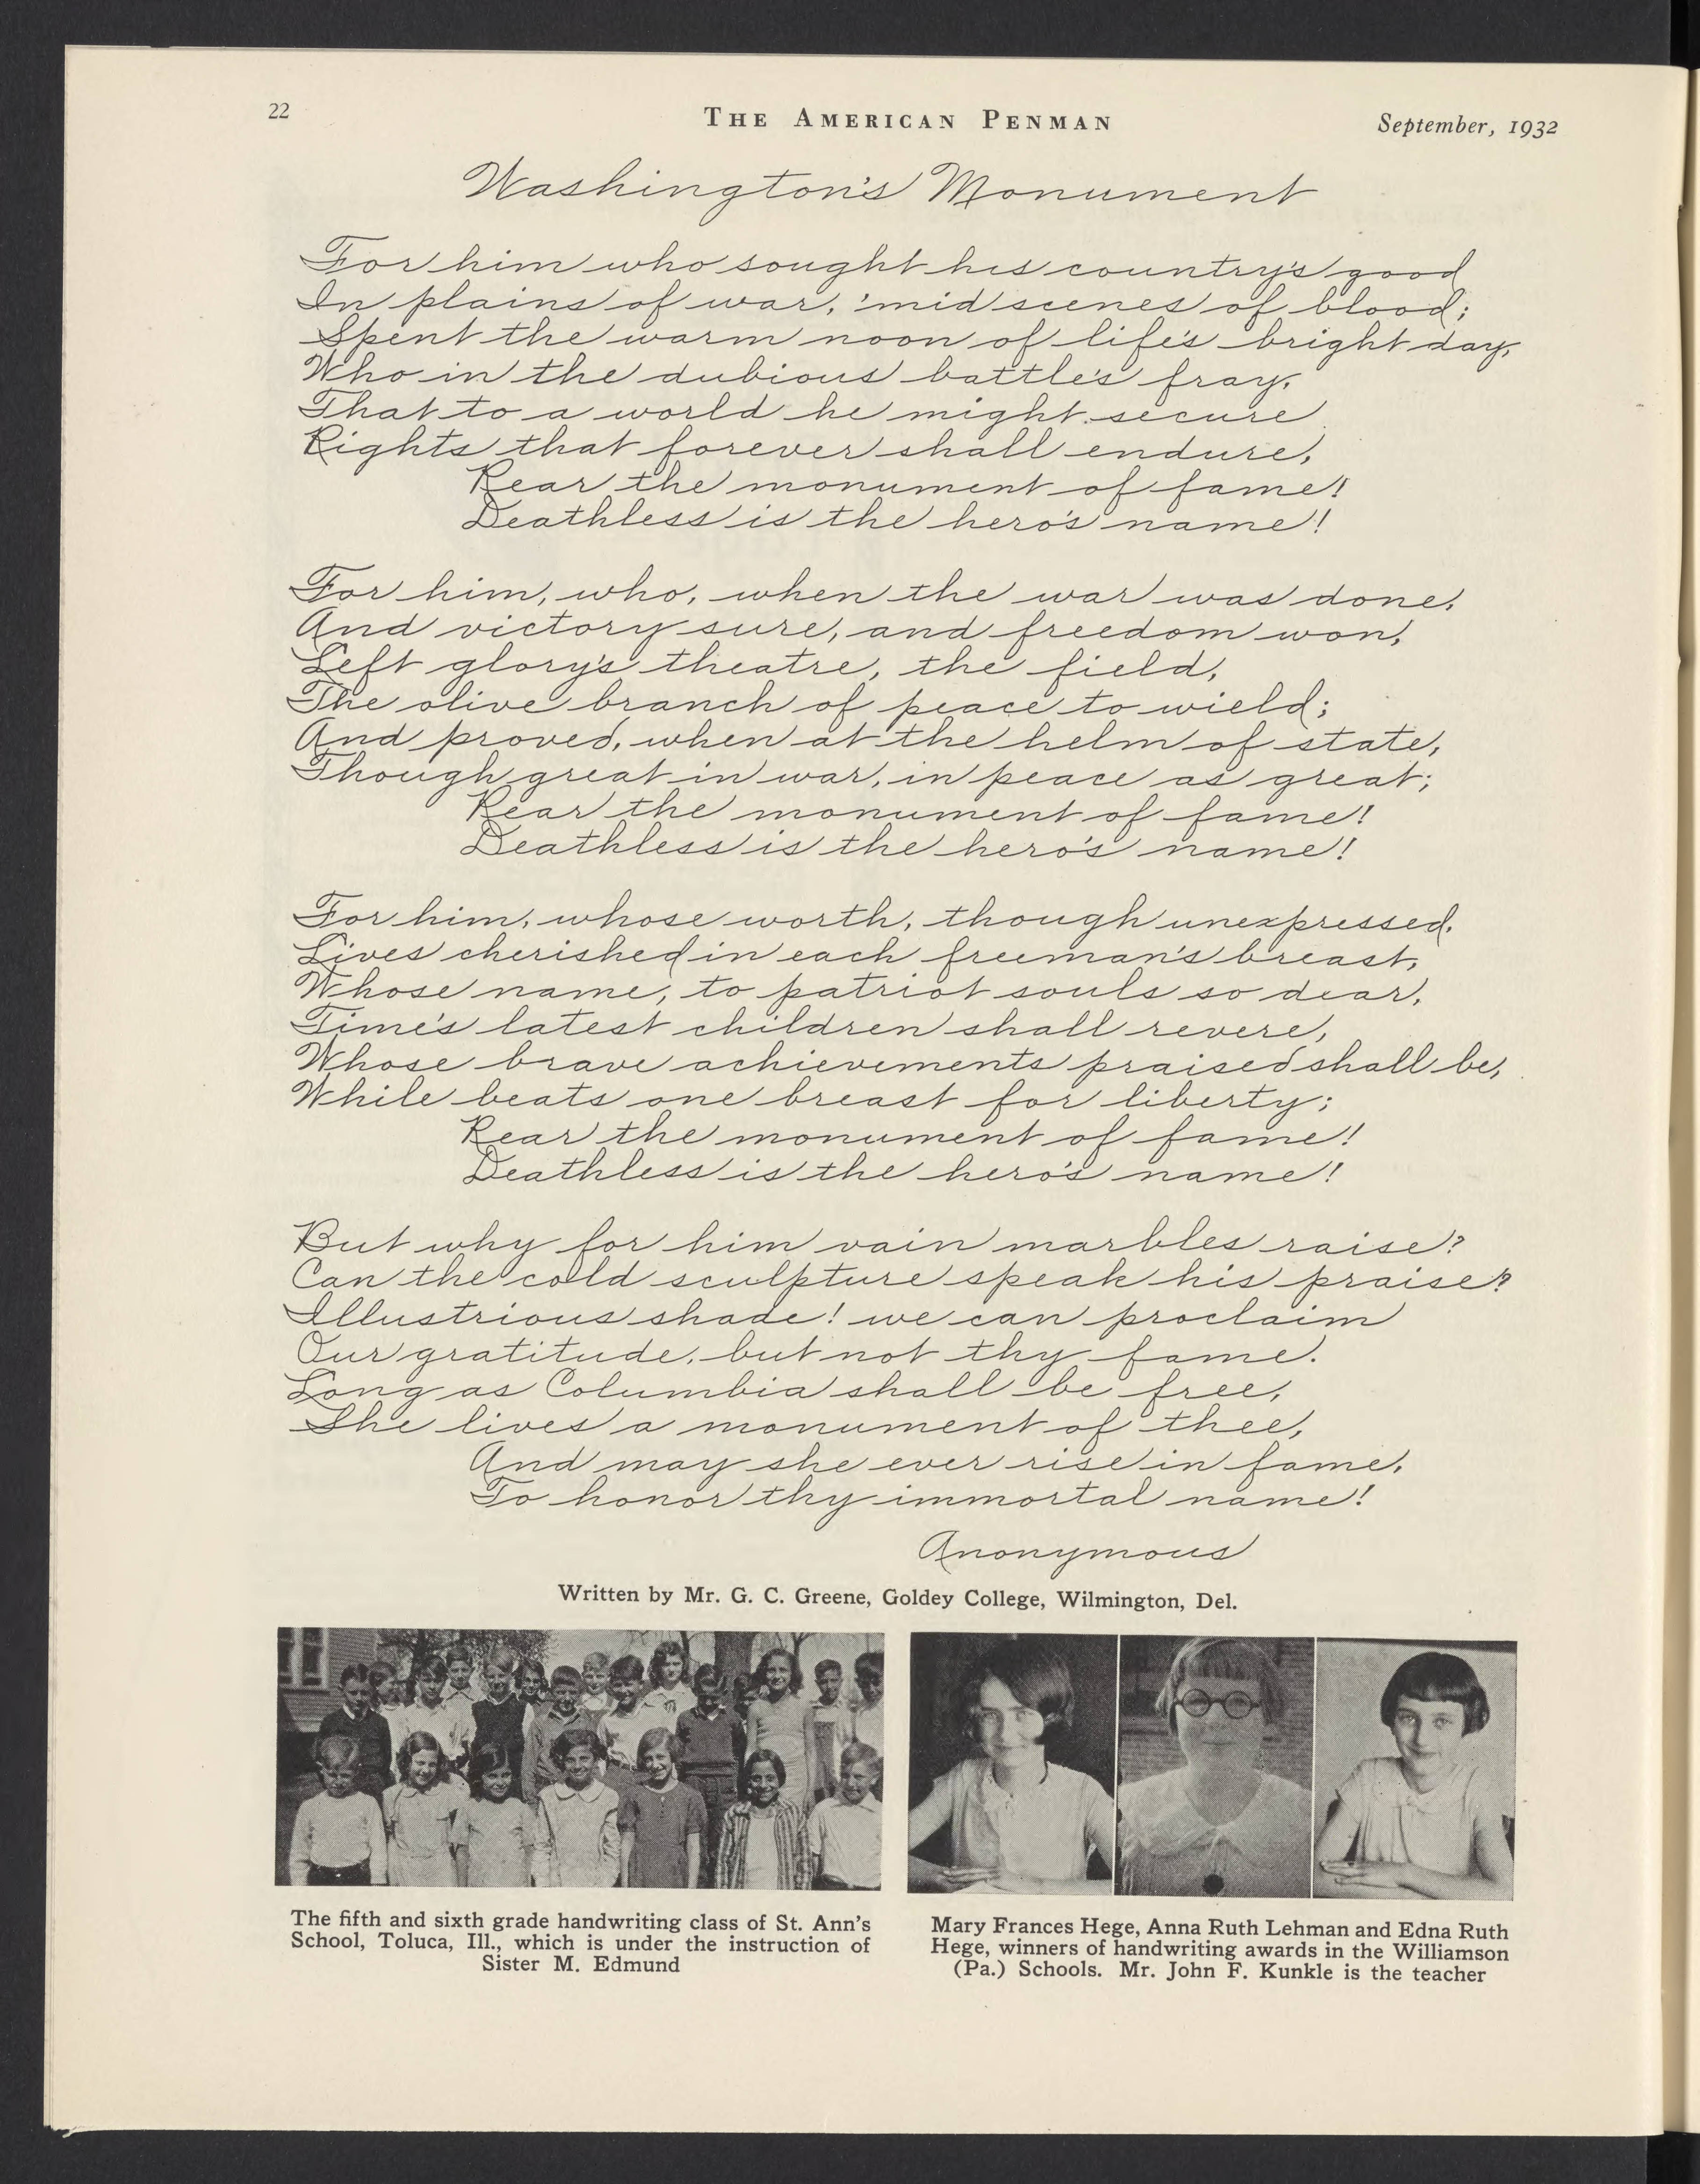 22
THE AMERICAN PENMAN
September, 1932
Washington's Monument
For him who sought his country's good
In plains of war, 'mid scenes of blood;
Spent the warm noon of life's bright day,
Who in the dubious battle's fray,
That to a world he might secure
Rights that forever shall endure,
Rear the monument of fame!
Deathless is the hero's name!
For him, who, when the war was done,
And victory sure, and freedom won,
Left glory's theatre, the field,
The olive branch of peace to wield;
And proved, when at the helm of state,
Though great in war, in peace as great;
Rear the monument of fame!
Deathless is the hero's name!
For him, whose worth, though unexpressed,
Lives cherished in each freeman's breast,
Whose name, to patriot souls so dear,
Time's latest children shall revere,
Whose brave achievements praised shall be,
While beats one breast for liberty;
Rear the monument of fame!
Deathless is the hero's name!
But why for him vain marbles raise?
Can the cold sculpture speak his praise?
Illustrious shade! we can proclaim
Our gratitude, but not thy fame.
Long as Columbia shall be free,
She lives a monument of thee,
And may she ever rise in fame,
To honor thy immortal name!
Anonymous
Written by Mr. G. C. Greene, Goldey College, Wilmington, Del.
The fifth and sixth grade handwriting class of St. Ann's
School, Toluca, Ill., which is under the instruction of
Sister M. Edmund
Mary Frances Hege, Anna Ruth Lehman and Edna Ruth
Hege, winners of handwriting awards in the Williamson
(Pa.) Schools. Mr. John F. Kunkle is the teacher